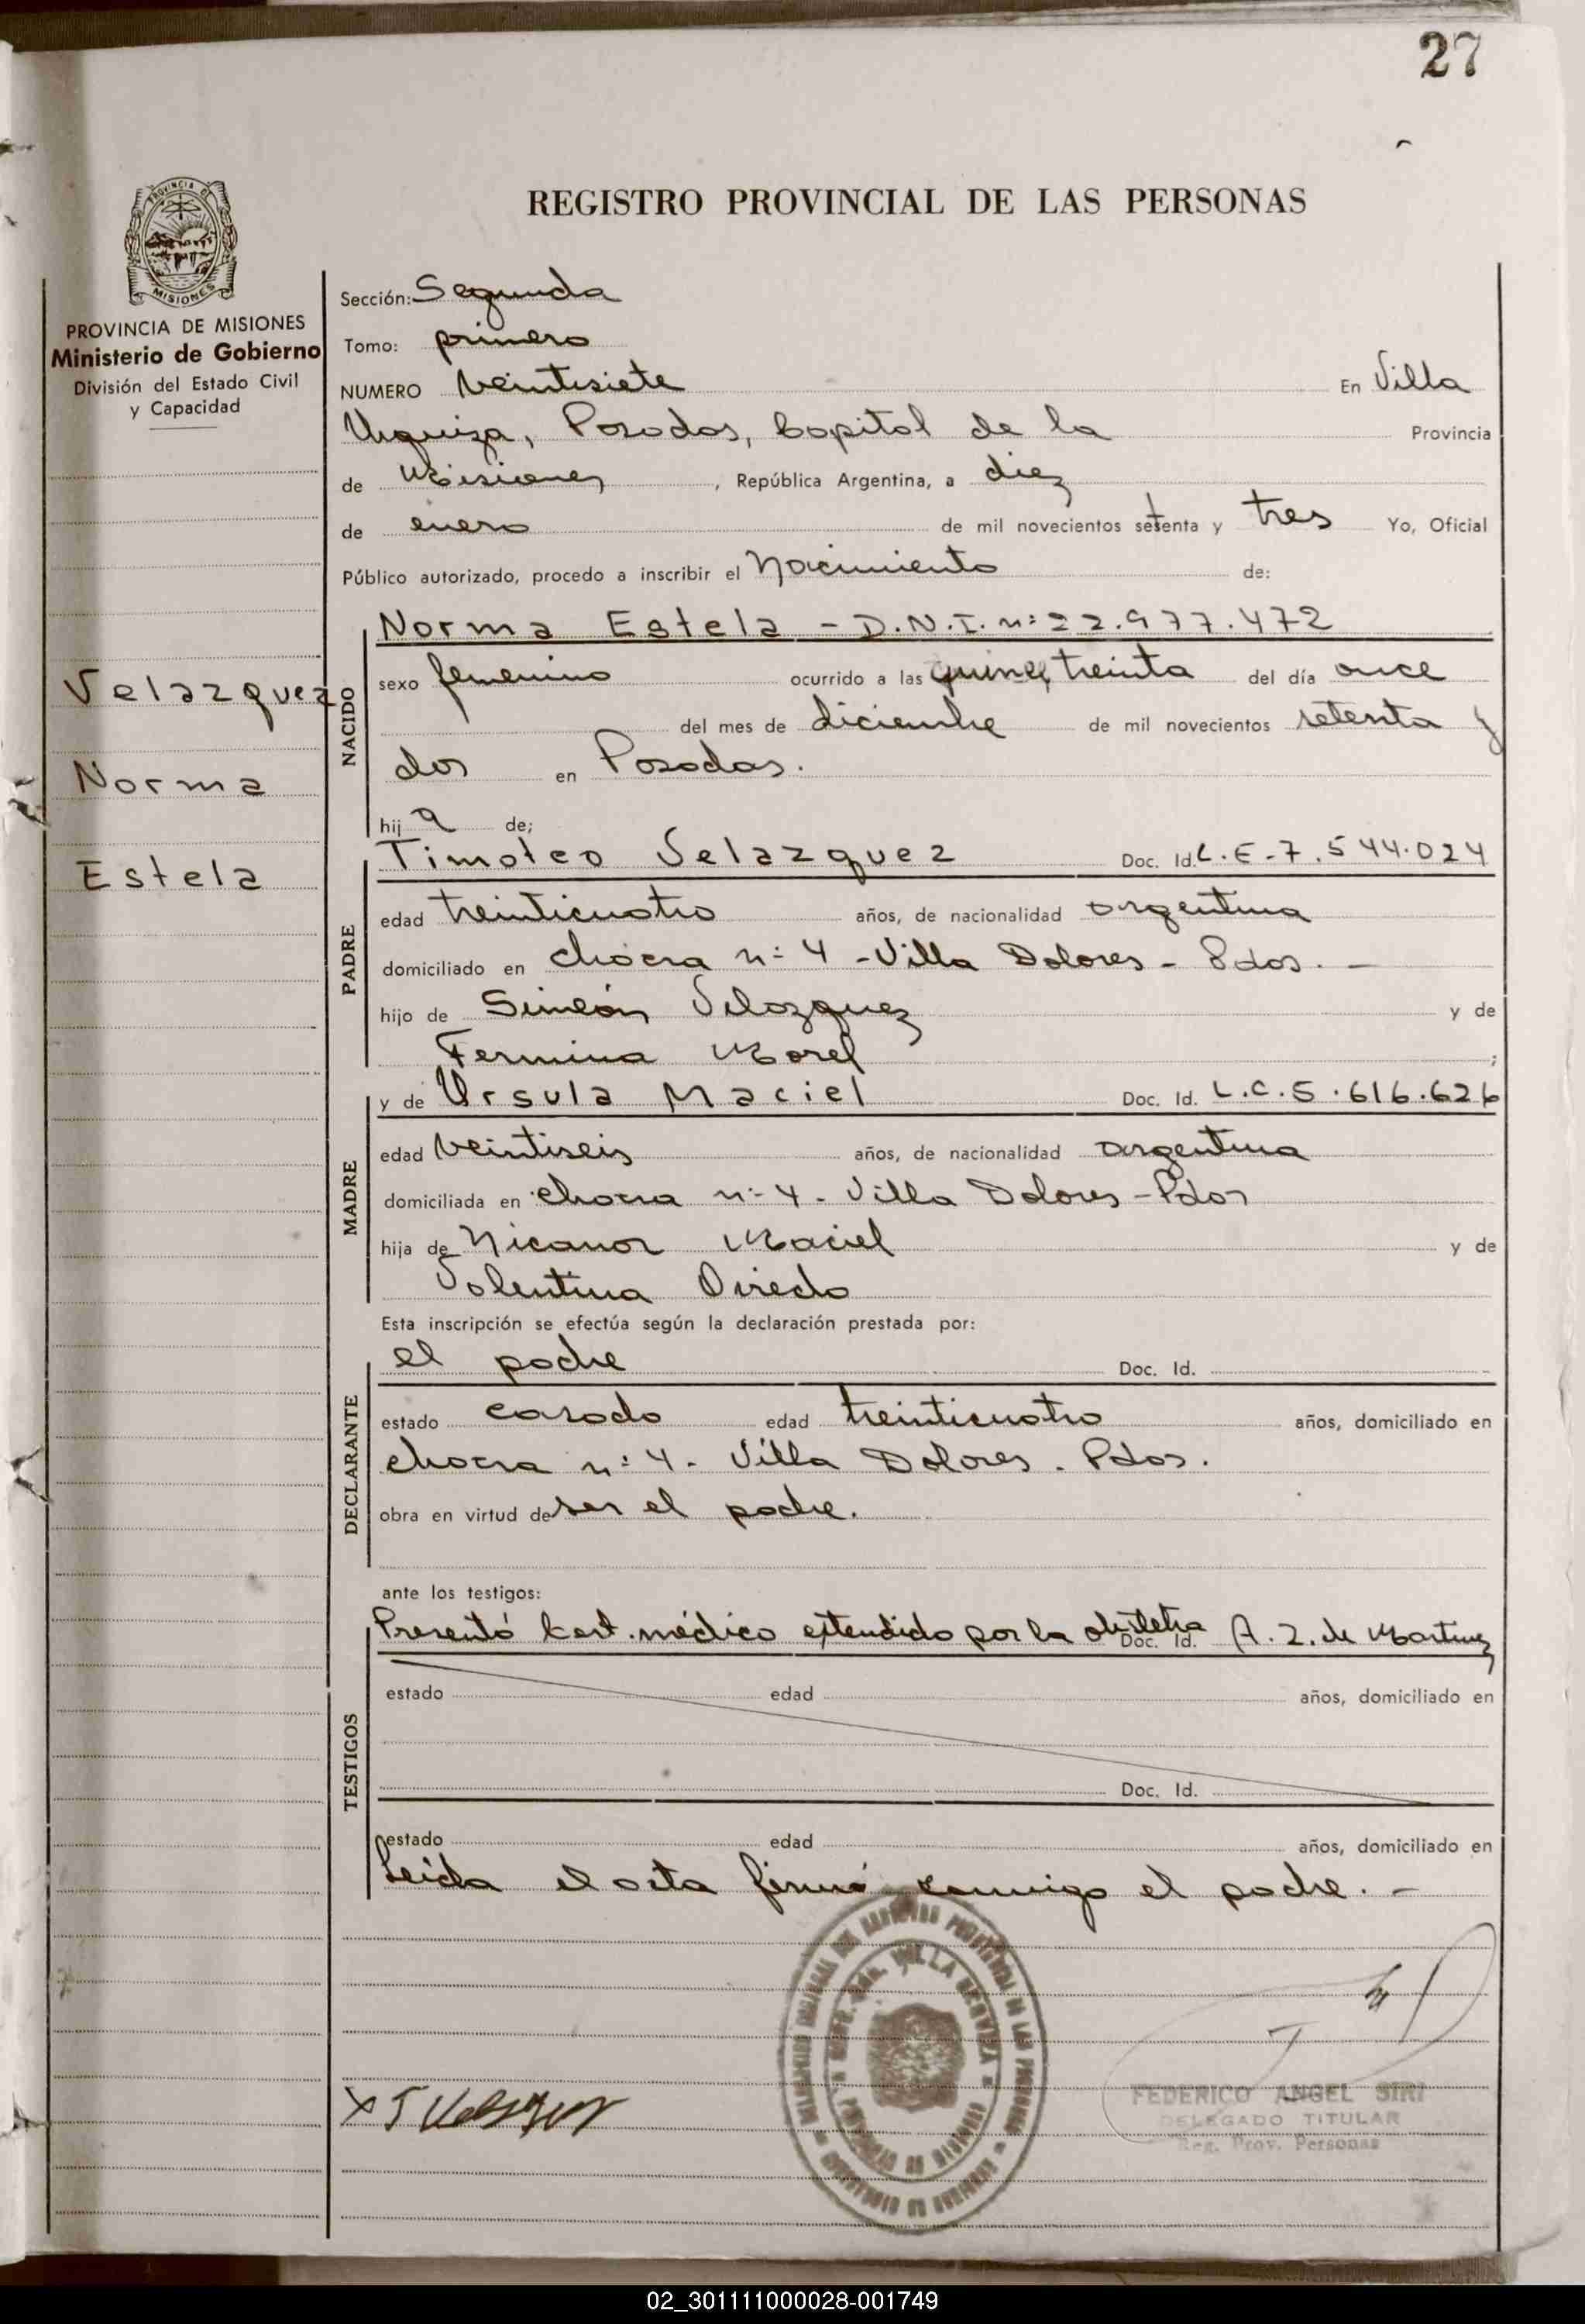 27
REGISTRO PROVINCIAL DE LAS PERSONAS
PROVINCIA DE MISIONES
Ministerio de Gobierno
División del Estado Civil
y Capacidad
Velazquez
Norma
Estela
Sección: Segunda
Tomo: primero
NUMERO veintisiete En Villa
Urquiza, Posadas, Capital de la Provincia
de Misiones, República Argentina, a diez
de enero de mil novecientos setenta y tres Yo, Oficial
Público autorizado, procedo a inscribir el Nacimiento de:
NACIDO
Norma Estela - D.N.I. nº 22.977.472
sexo femenino ocurrido a las quince, treinta del día once
del mes de diciembre de mil novecientos setenta y
dos en Posadas.
hija de;
PADRE
Timoteo Velazquez Doc. Id. L.E-7.544.024
edad treinticuatro años, de nacionalidad argentina
domiciliado en chacra nº 4 - Villa Dolores - Pdas. -
hijo de Simeón Velazquez y de
Fermina Morel ;
MADRE
y de Ursula Maciel Doc. Id. L.C.5.616.626
edad veintiseis años, de nacionalidad argentina
domiciliada en chacra nº 4 - Villa Dolores - Pdas
hija de Nicanor Maciel y de
Valentina Oviedo
Esta inscripción se efectúa según la declaración prestada por:
DECLARANTE
el padre Doc. Id.
estado casado edad treinticuatro años, domiciliado en
chacra nº 4 - Villa Dolores - Pdas.
obra en virtud de ser el padre.
ante los testigos:
TESTIGOS
Presentó Cert. médico extendido por la obstetra Doc. Id. A. Z. de Martinez
estado edad años, domiciliado en
Doc. Id.
estado edad años, domiciliado en
Leída el acta firmó conmigo el padre. -
X T Velazquez
FEDERICO ANGEL SIRI
DELEGADO TITULAR
Reg. Prov. Personas
02_301111000028-001749